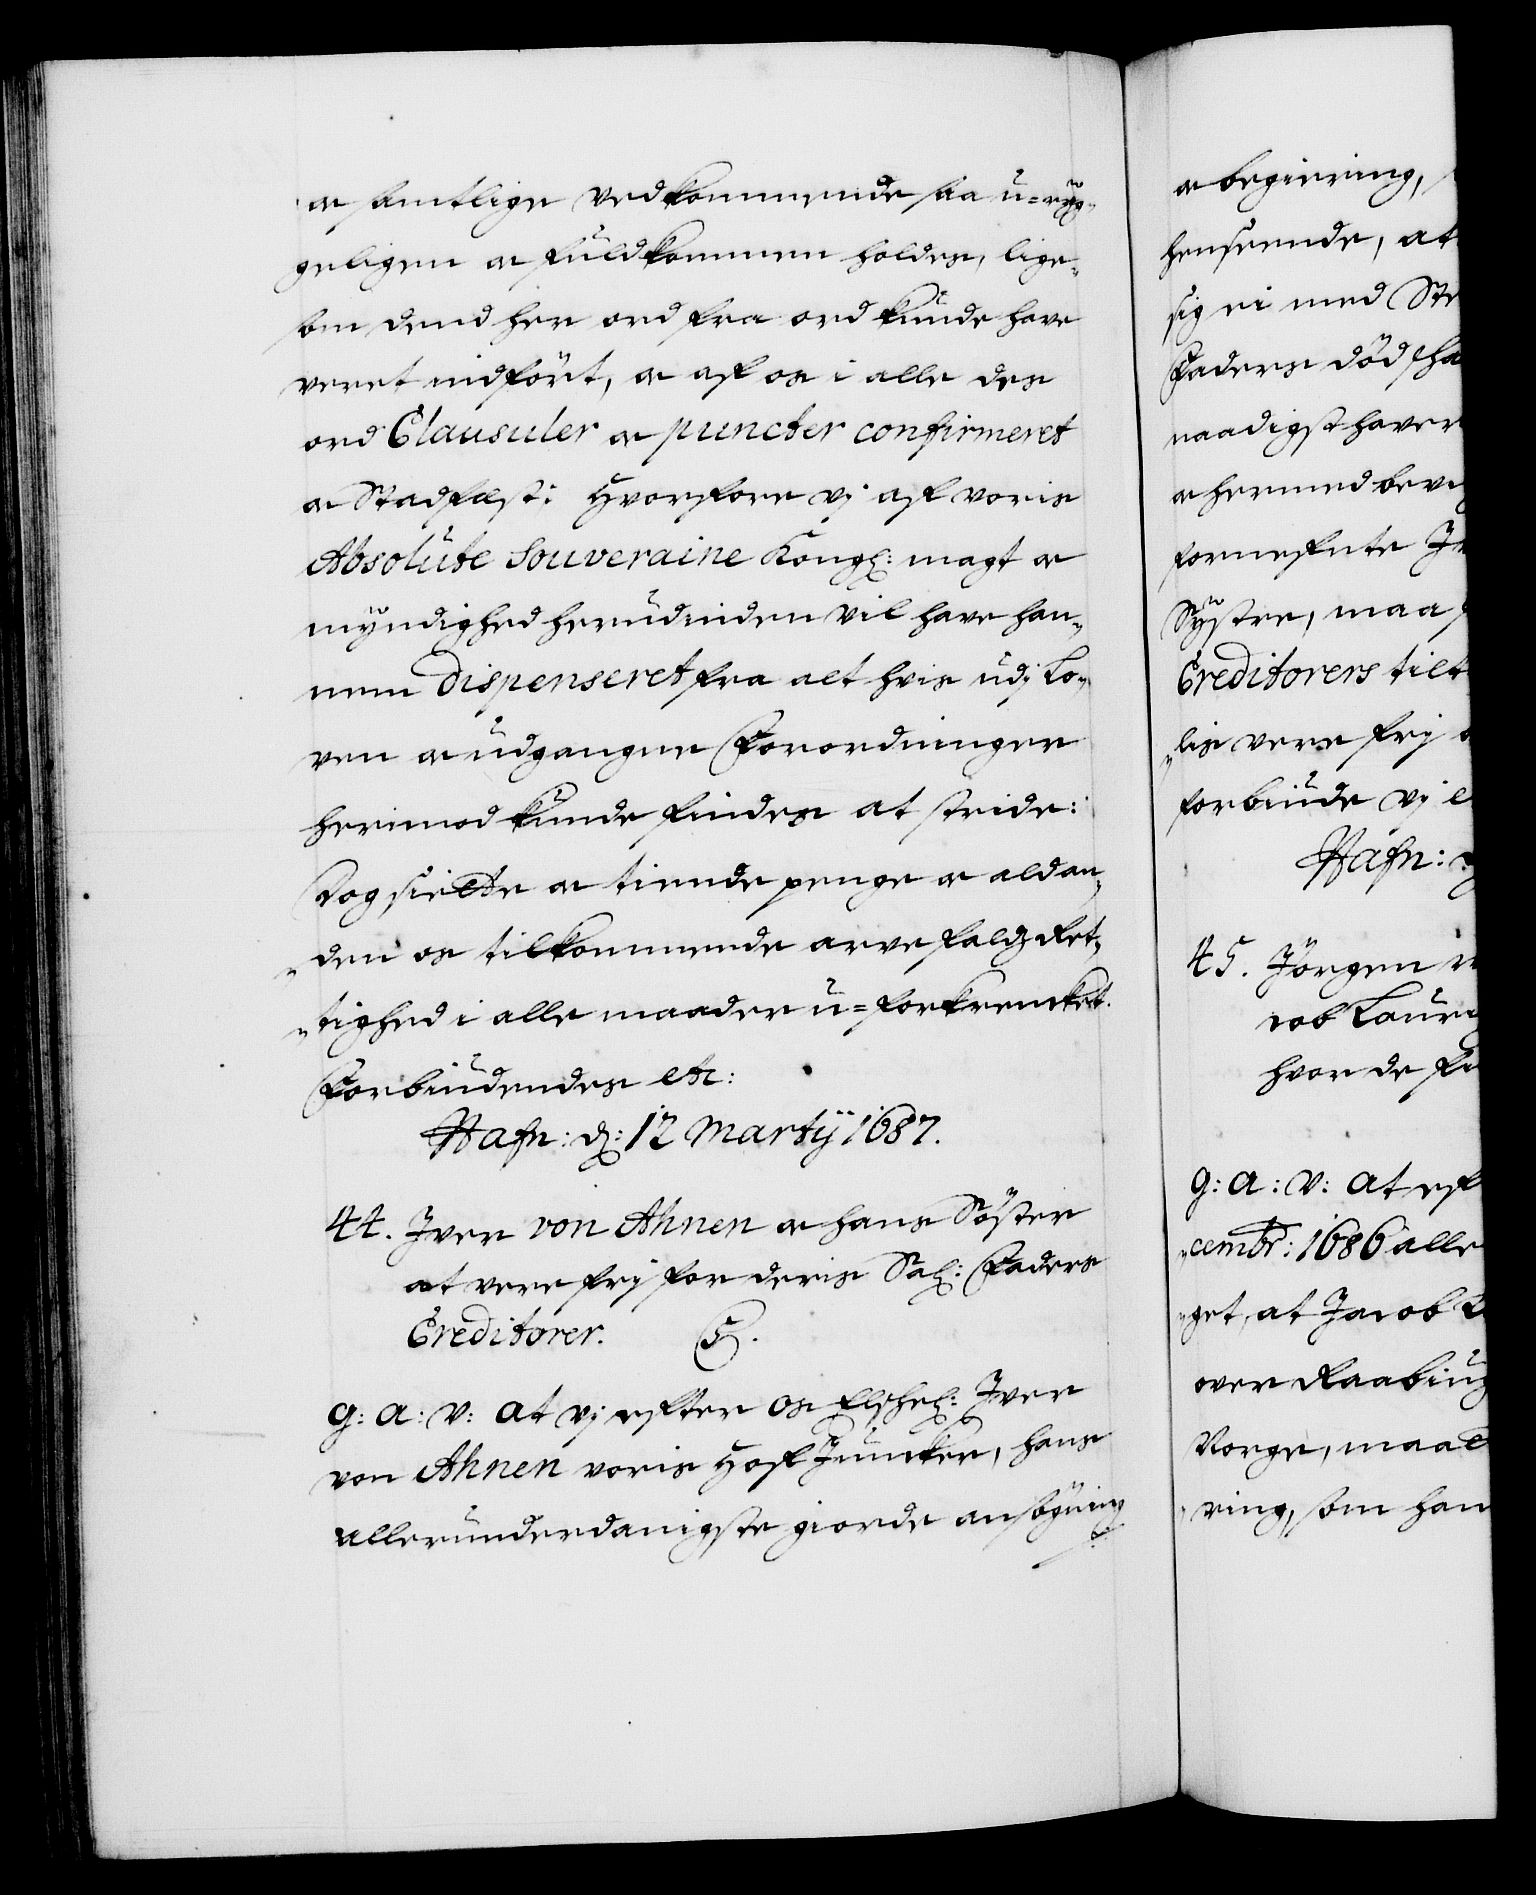 a samtlige Vedkommende saa u-ryg-
geligen a fuldkommen holdes, lige-
som dend her ord fra ord kunde have
veret indfört, a aff os i alle des
ord Clausuler a puncter confirmeret
a Stadfæst: Hvorfore vj aff voris
Absolute Souveraine Kongl: magt a
myndighed herudinden vil have han-
nem Dispenseret fra alt hvis udj Lo-
ven a udgangne Forordninger
herimod kunde findes at stride:
Dog siette a tiende penge a aldan-
den os tilkommende arvefaldz Ret-
tighed i alle maader u-forkrencket.
Forbiudendes etc:
Hafn: d: 12 Martij 1687.
44. Iver von Ahnen a hans Söster
at vere frj for deris Sal: Faders
Creditorer. S.
G: A: V: At vj effter os Elschel: Iver
von Ahnen voris Hoff Juncker, hans
allerunderdanigste giorde ansögning
a begiering,
henseende, at
sig ei med Ste
Faders död ha
naadigst haver
a hermed bevi
fornefnte I
Systre, maa
Creditorers tilt
lis vere frj
forbiude vj
Hafn:
45. Jörgen
cob Laur
hvor de
G: A: V: At eff
cembr: 1686 alle
get, at Jacob
over Raabiug
Norge, maa
ring, som han